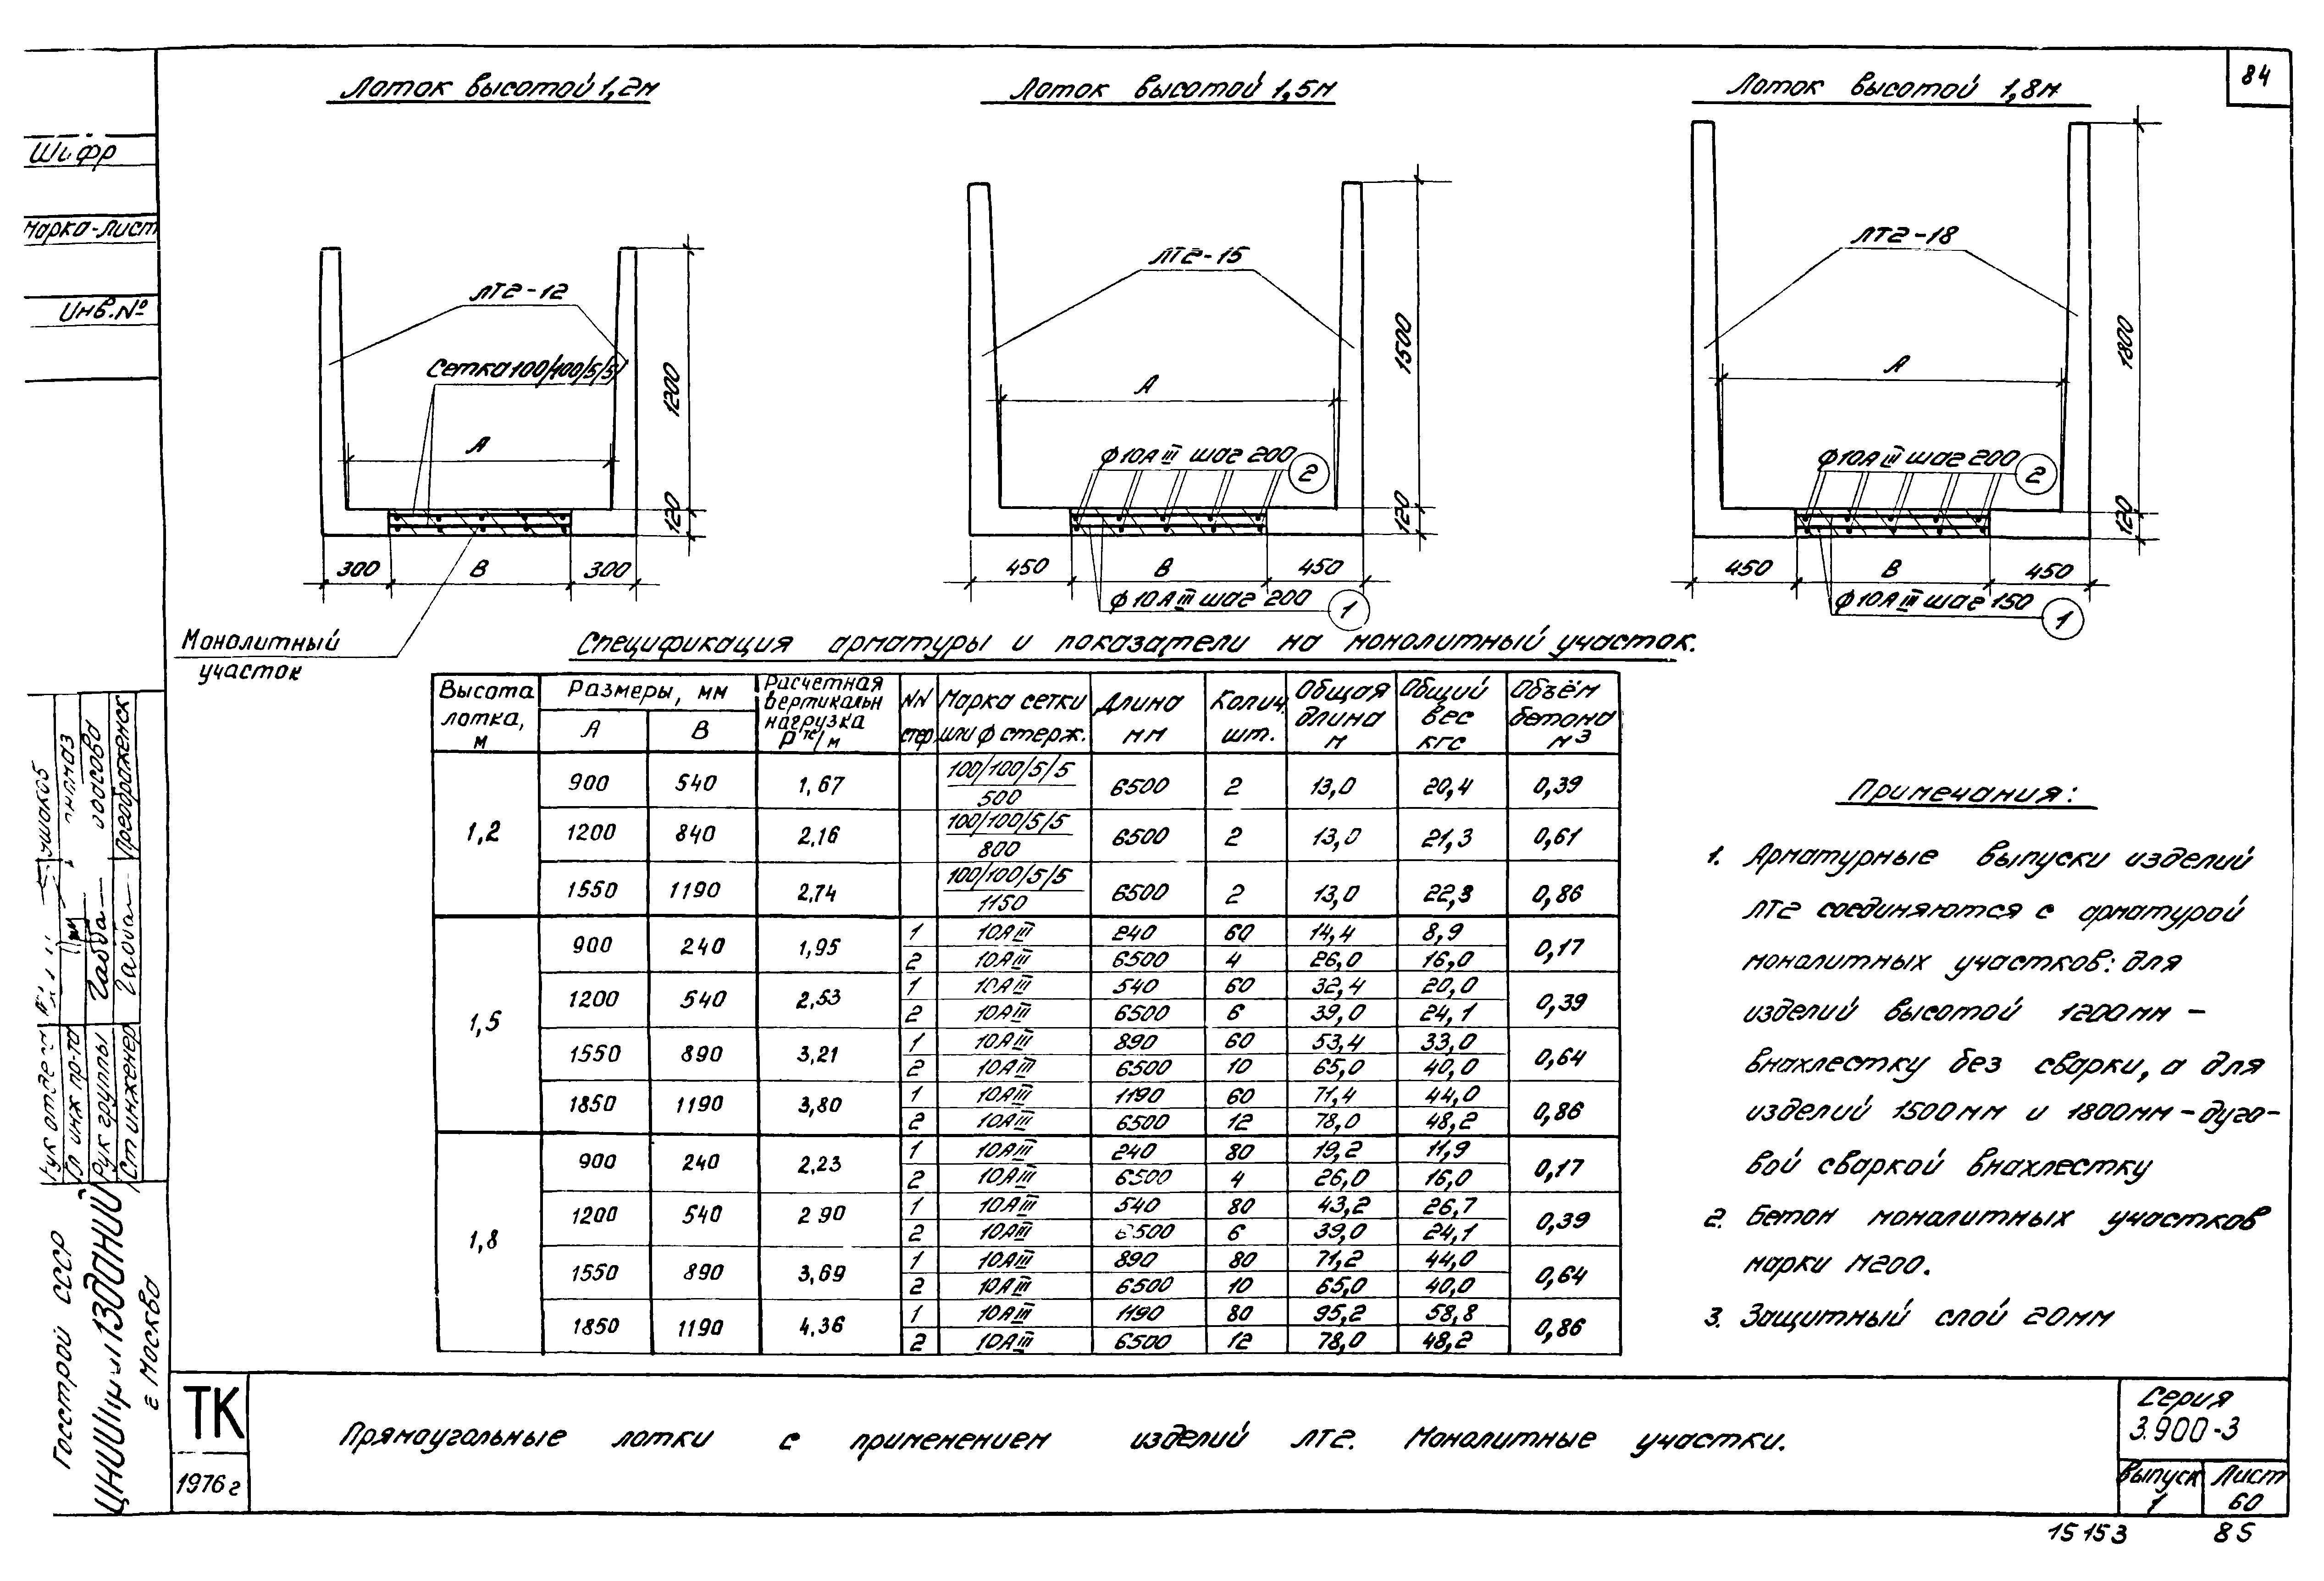 84
Лоток высотой 1,2м
Лоток высотой 1,5м
Лоток высотой 1,8м
Шифр
Марка-лист
Инв.№
ЛТ2-12
Сетка 100/400/5/5
А
1200
120
300 В 300
Монолитный
участок
ЛТ2-15
А
1500
ф10АIII шаг 200 2
120
450 В 450
ф10АIII шаг 200 1
ЛТ2-18
А
1800
ф10АIII шаг 200 2
120
450 В 450
ф10АIII шаг 150 1
Спецификация арматуры и показатели на монолитный участок.
Высота лотка, м | Размеры, мм А | В | Расчетная вертикальн нагрузка Р тс/м | NN стер. | Марка сетки или ф стерж. | Длина мм | Колич. шт. | Общая длина м | Общий вес кгс | Объём бетона м3
1,2 | 900 | 540 | 1,67 | 100/100/5/5 500 | 6500 | 2 | 13,0 | 20,4 | 0,39
1200 | 840 | 2,16 | 100/100/5/5 800 | 6500 | 2 | 13,0 | 21,3 | 0,61
1550 | 1190 | 2,74 | 100/100/5/5 1150 | 6500 | 2 | 13,0 | 22,3 | 0,86
1,5 | 900 | 240 | 1,95 | 1 | 10АIII | 240 | 60 | 14,4 | 8,9 | 0,17
2 | 10АIII | 6500 | 4 | 26,0 | 16,0
1200 | 540 | 2,53 | 1 | 10АIII | 540 | 60 | 32,4 | 20,0 | 0,39
2 | 10АIII | 6500 | 6 | 39,0 | 24,1
1550 | 890 | 3,21 | 1 | 10АIII | 890 | 60 | 53,4 | 33,0 | 0,64
2 | 10АIII | 6500 | 10 | 65,0 | 40,0
1850 | 1190 | 3,80 | 1 | 10АIII | 1190 | 60 | 71,4 | 44,0 | 0,86
2 | 10АIII | 6500 | 12 | 78,0 | 48,2
1,8 | 900 | 240 | 2,23 | 1 | 10АIII | 240 | 80 | 19,2 | 11,9 | 0,17
2 | 10АIII | 6500 | 4 | 26,0 | 16,0
1200 | 540 | 2 90 | 1 | 10АIII | 540 | 80 | 43,2 | 26,7 | 0,39
2 | 10АIII | 6500 | 6 | 39,0 | 24,1
1550 | 890 | 3,69 | 1 | 10АIII | 890 | 80 | 71,2 | 44,0 | 0,64
2 | 10АIII | 6500 | 10 | 65,0 | 40,0
1850 | 1190 | 4,36 | 1 | 10АIII | 1190 | 80 | 95,2 | 58,8 | 0,86
2 | 10АIII | 6500 | 12 | 78,0 | 48,2
Примечания:
1. Арматурные выпуски изделий
ЛТ2 соединяются с арматурой
монолитных участков: для
изделий высотой 1200мм –
внахлестку без сварки, а для
изделий 1500мм и 1800мм – дуго-
вой сваркой внахлестку
2. Бетон монолитных участков
марки М200.
3. Защитный слой 20мм
Ушаков
Гл инж пр-та
Рук группы
Ст инженер Преображенск
Госстрой СССР
г Москва
ТК
1976г
Прямоугольные лотки с применением изделий ЛТ2. Монолитные участки.
Серия
3.900-3
Выпуск
1
Лист
60
15153 85